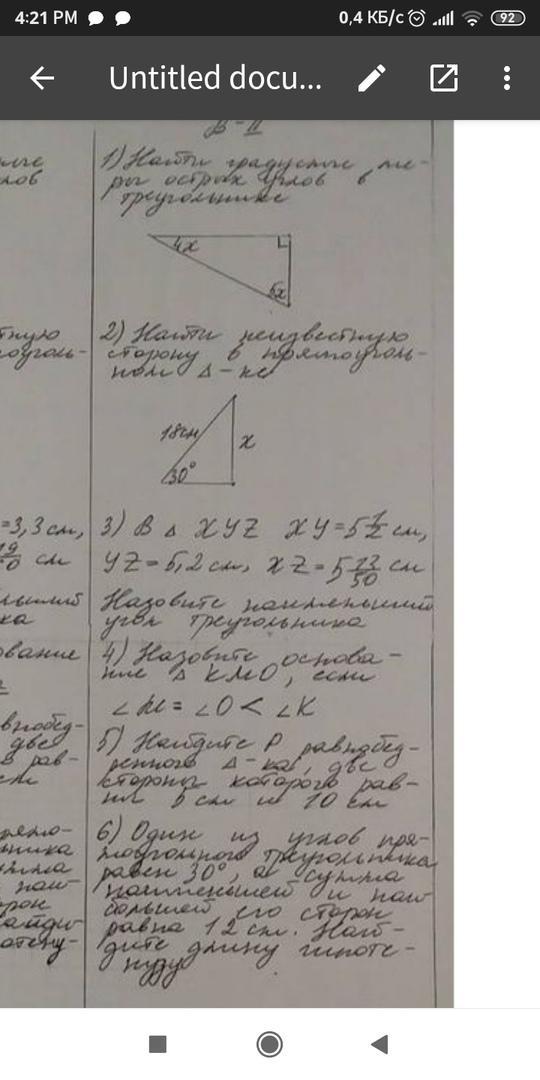 4:21 PM 0,4 КБ/с 92
Untitled docu...
В-II
1) Найти градусные ме-
ры острых углов в
треугольнике
4x
5x
2) Найти неизвестную
сторону в прямоуголь-
ном Δ-ке
18см
x
30°
=3,3 см,
см
3) В Δ XYZ XY=5 1/2 см,
YZ=5,2 см, XZ=5 23/50 см
Назовите наименьший
угол треугольника
ование
4) Назовите основа-
ние Δ КМО, если
∠М = ∠О < ∠К
5) Найдите Р равнобед-
ренного Δ-ка, две
стороны которого рав-
ны см и 10 см
6) Один из углов пря-
моугольного треугольника
равен 30°, а сумма
наименьшей и наи
большей его сторон
равна 12 см. Най-
дите длину гипоте-
нузы